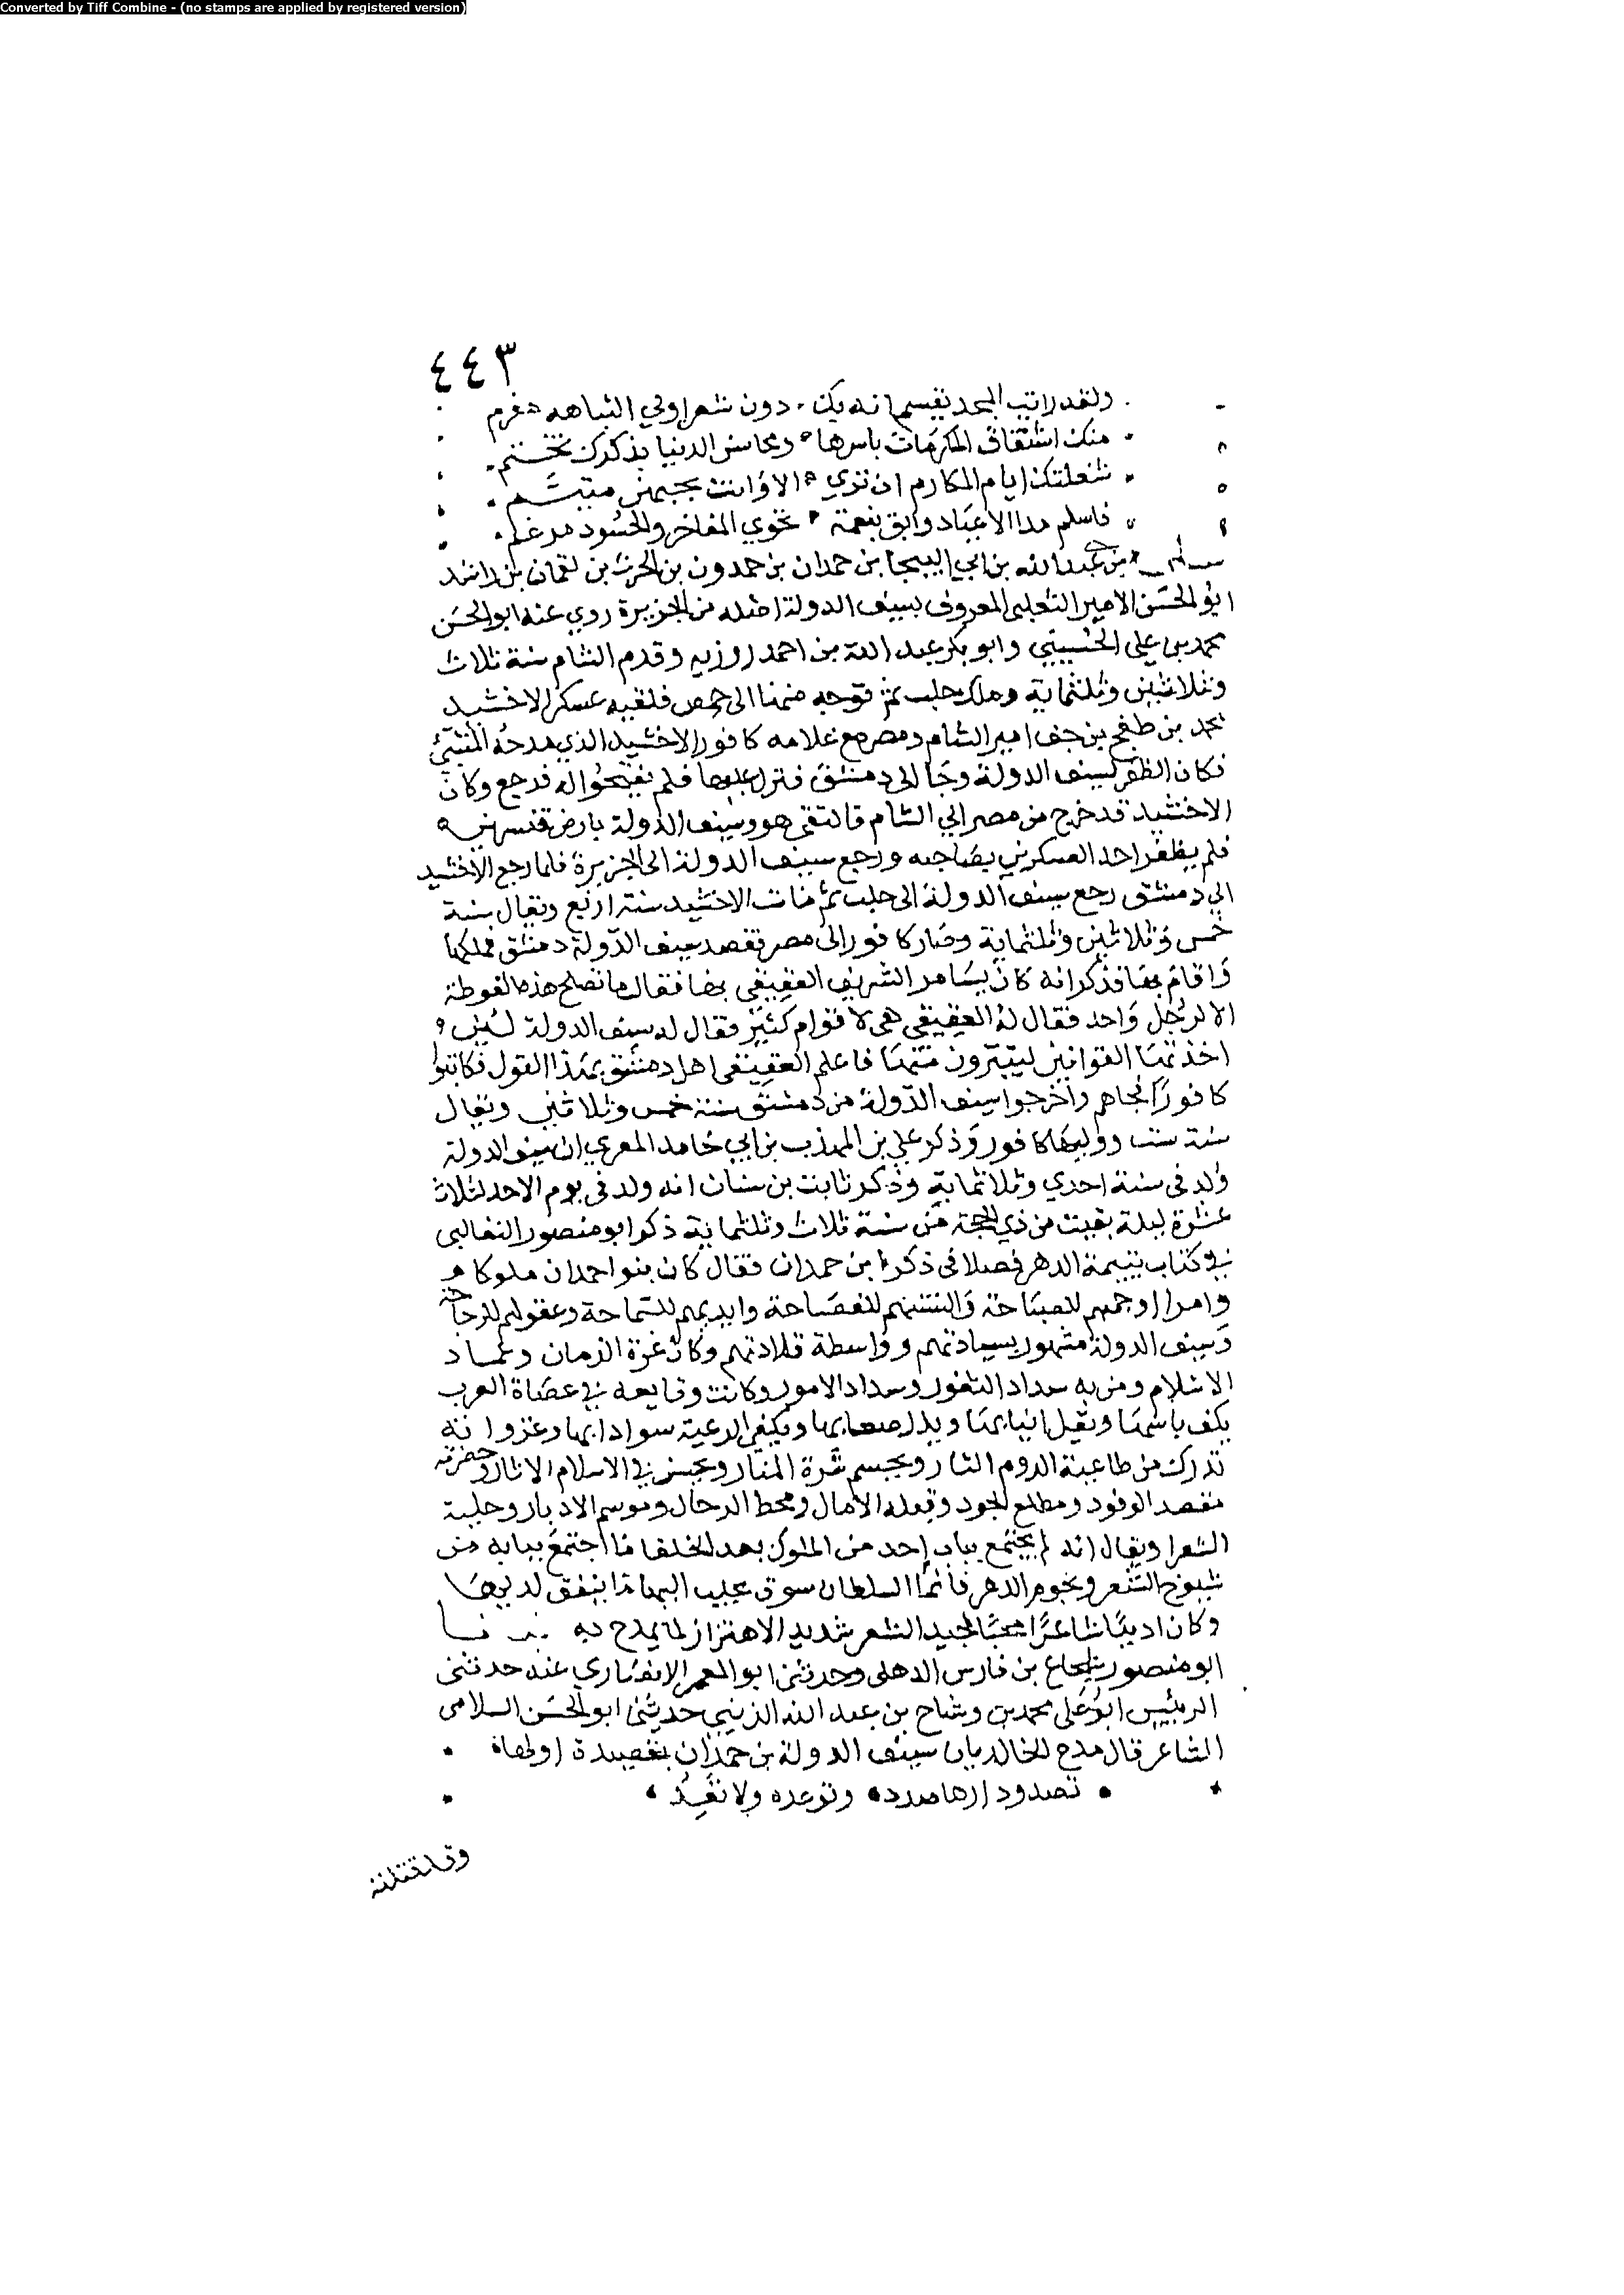 Converted by Tiff Combine - (no stamps are applied by registered version)
٤٤٣
ولقد رايت المجد يقسم انه بك دون شعراولي النباهه مغرم
منك اشتقاق المكرمات باسرها ومحاسن الدنيا بذكرك تختتم
شغلتك ايام المكارم ان تري الا وانت بجيهن متيم
فاسلم مدا الاعياد وابق بنعمة تحوي المفاخر والحسود مرغم
بن عبدالله بن ابي الهيجا بن حمدان بن حمدون بن الحرث بن لقمان بن راشد
ابو الحسن الامير التغلبي المعروف بسيف الدولة اصله من الجزيرة روي عنه ابو الحسن
محمد بن علي الحسيني وابو بكر عبد الله بن احمد روزبه وقدم الشام سنة ثلاث
وثلاثين وثلثماية وملك حلب ثم توجه منها الى حمص فلقيه عسكر الاخشيد
محمد بن طغج بن جف امير الشام ومصر مع غلامه كافور الاخشيد الذي مدحه المتنبي
فكان الظفر لسيف الدولة وجا الى دمشق فنزل عليها فلم يفتحوا له فرجع وكان
الاخشيد قد خرج من مصر الي الشام فالتقى هو وسيف الدولة بارض قنسرين
فلم يظفر احد العسكرين بصاحبه ورجع سيف الدولة الى الجزيرة فلما رجع الاخشيد
الي دمشق رجع سيف الدولة الى حلب ثم مات الاخشيد سنة اربع ويقال سنة
خمس وثلاثين وثلثماية وصار كافور الى مصر فقصد سيف الدولة دمشق فملكها
واقام بها فذكر انه كان يساير الشريف العقيقي بها فقال ما تصلح هذه الغوطة
الا لرجل واحد فقال له العقيقي هي لاقوام كثير فقال له سيف الدولة لئن
اخذتها القوانين ليتبرون منها فاعلم العقيقي اهل دمشق بهذا القول فكاتبوا
كافورا فجاهم واخرجوا سيف الدولة من دمشق سنة خمس وثلاثين ويقال
سنة ست ووليها كافور وذكر علي بن المهذب بن ابي حامد المعري ان سيف الدولة
ولد في سنة احدي وثلاثماية وذكر ثابت بن سنان انه ولد في يوم الاحد لثلاث
عشرة ليلة بقيت من ذي الحجة من سنة ثلاث وثلثماية ذكر ابو منصور الثعالبي
في كتاب يتيمة الدهر فصلا في ذكر ابن حمدان فقال كان بنوا حمدان ملوكا
وامرا اوجههم للصباحة والسنتهم للفصاحة وايديهم للسماحة وعقولهم للرجاحة
وسيف الدولة مشهور بسيادتهم وواسطة قلادتهم وكان غرة الزمان وعماد
الاسلام ومن به سداد الثغور وسداد الامور وكانت وقايعه في عصاة العرب
يكف باسها ويفل انيابها ويذل صعابها ويكفي الرعية سوادابها وغزواته
تدرك من طاغية الروم الثار ويحسم شرة المنار ويحسن في الاسلام الاثار وحضرته
مقصد الوفود ومطلع الجود وقبلة الامال ومحط الرحال وموسم الادبار وحلبة
الشعرا ويقال انه لم يجتمع بباب احد من الملوك بعد الخلفا ما اجتمع ببابه من
شيوخ الشعر ونجوم الدهر فانما السلطان سوق يجلب اليها ما ينفق لديها
وكان اديبا شاعرا محبا لجيد الشعر شديد الاهتزاز لما يمدح به
ابو منصور بن فارس الدهلي وحدثني ابو المعمر الانصاري عنه حدثني
الرييس ابو علي محمد بن وشاح بن عبد الله الزينبي حدثني ابو الحسن السلامي
الشاعر قال مدح الخالديان سيف الدولة بن حمدان بقصيدة اولها
تصد ودارها صدد وتوعده ولا تعد
وقد قتلته